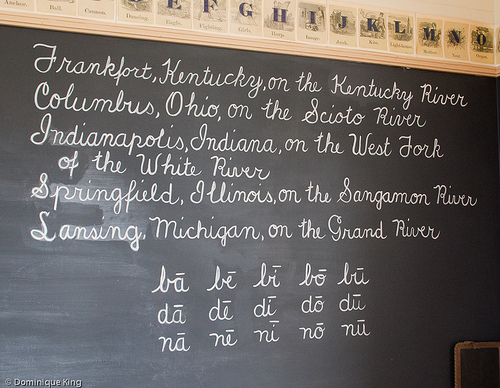 E F G H I J K L M N O
Frankfort, Kentucky, on the Kentucky River
Columbus, Ohio, on the Scioto River
Indianapolis, Indiana, on the West Fork
of the White River
Springfield, Illinois, on the Sangamon River
Lansing, Michigan, on the Grand River
bā bē bī bō bū
dā dē dī dō dū
nā nē nī nō nū
© Dominique King